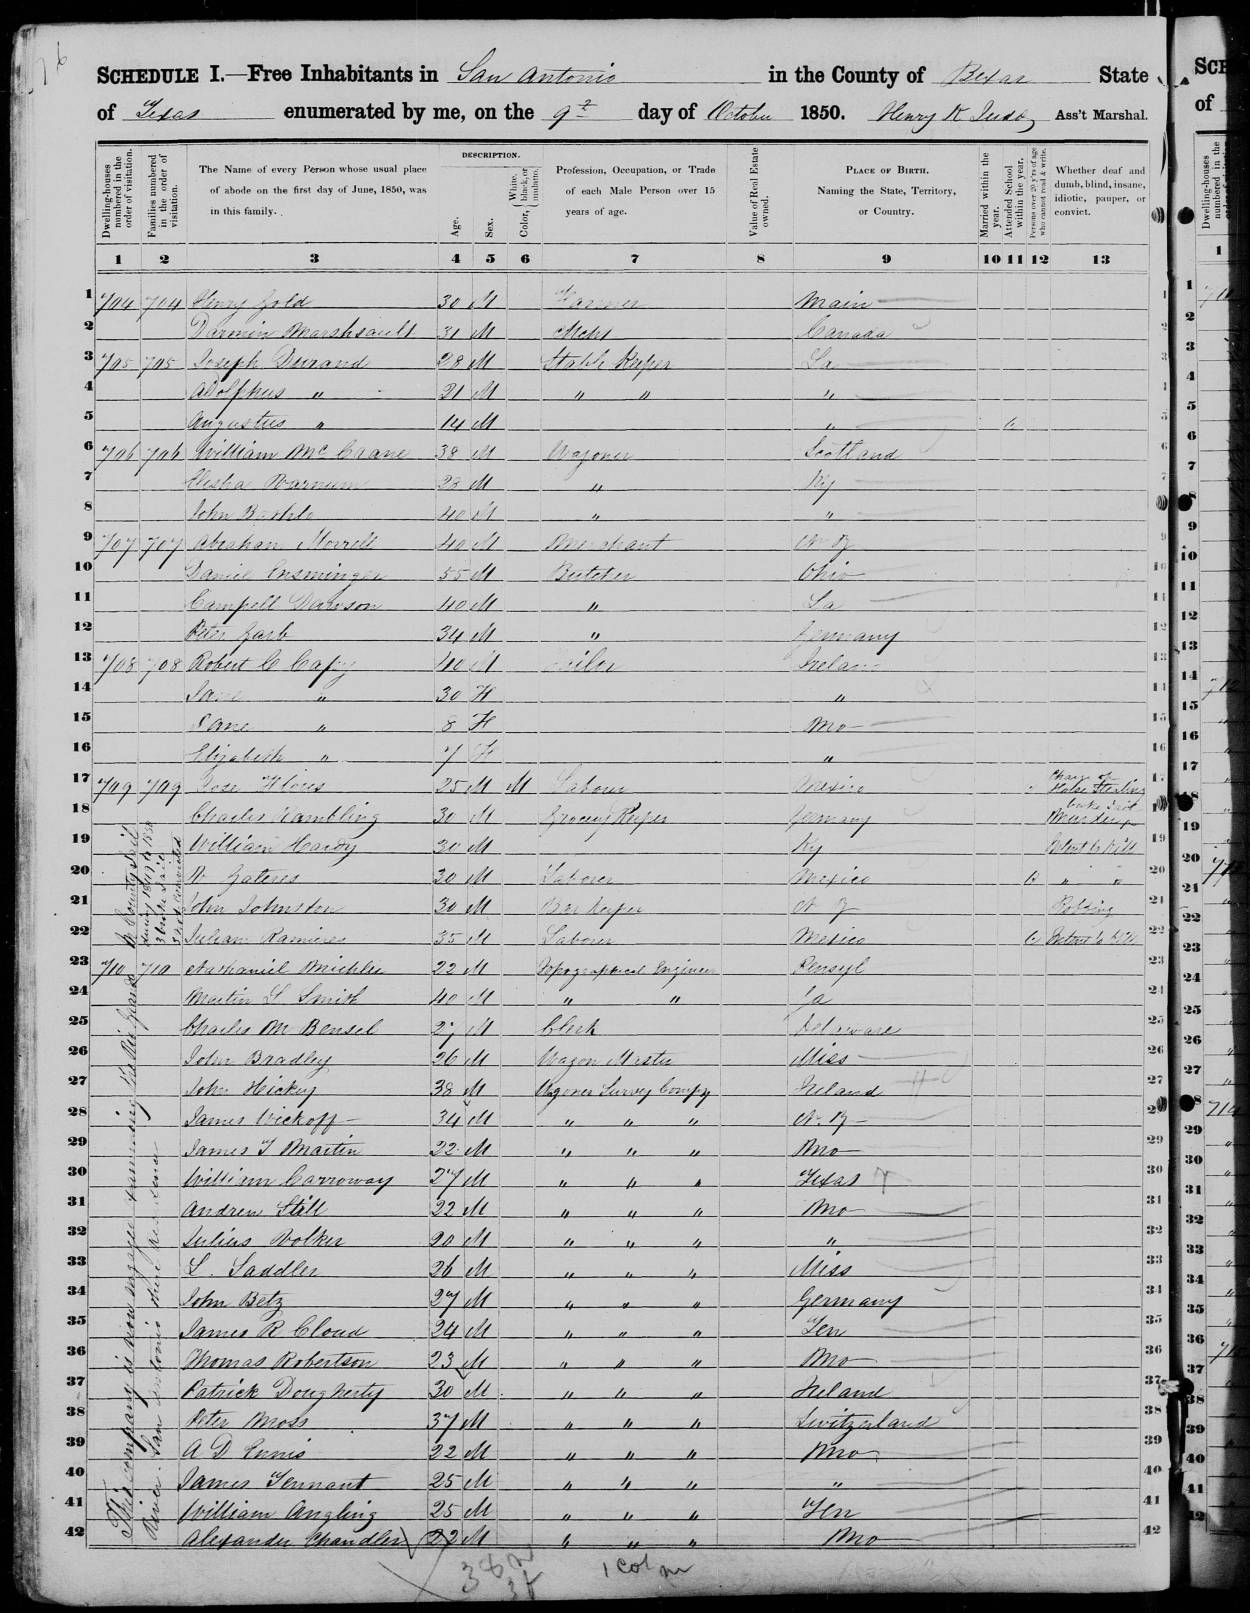 SCHEDULE I.—Free Inhabitants in San Antonio in the County of Bexar State
of Texas enumerated by me, on the 9th day of October 1850. Henry K Judd Ass't Marshal.
Dwelling-houses numbered in the order of visitation.
Families numbered in the order of visitation.
The Name of every Person whose usual place of abode on the first day of June, 1850, was in this family.
DESCRIPTION.
Age.
Sex.
Color, White, black, or mulatto.
Profession, Occupation, or Trade of each Male Person over 15 years of age.
Value of Real Estate owned.
PLACE OF BIRTH. Naming the State, Territory, or Country.
Married within the year.
Attended School within the year.
Persons over 20 y'rs of age who cannot read & write.
Whether deaf and dumb, blind, insane, idiotic, pauper, or convict.
1 2 3 4 5 6 7 8 9 10 11 12 13
1 704 704 Henry Gold 30 M Farmer Main 1
2 31 M Mcht Canada 2
3 705 705 Joseph Durand 28 M Stable Keeper La 3
4 Adolphus " 21 M " " " 4
5 Augustus " 14 M " 5
6 706 706 William McCrane 38 M Wagoner Scotland 6
7 Elisha Barnum 28 M " Ky 7
8 John 40 M " " 8
9 707 707 Abraham Morrell 40 M Merchant N Y 9
10 Daniel Ensminger 55 M Butcher Ohio 10
11 Campell Dawson 40 M " La 11
12 Peter Garb 34 M " Germany 12
13 708 708 Robert C 40 M Ireland 13
14 Jane " 30 F " 14
15 Jane " 8 F Mo 15
16 Elizabeth " 7 F " 16
17 709 709 Jose Flores 25 M M Labour Mexico Horse Stealing 17
18 Charles Rambling 30 M Grocery Keeper Germany Murder
19 William Hardy 30 M Ky Intent to Kill 19
20 30 M Laborer Mexico " " 20
21 John Johnston 30 M Bar keeper N Y Robbing 21
22 Julian Ramires 35 M Laborer Mexico Intent to Kill 22
23 710 710 Nathaniel Michler 22 M Topographical Engineer Pensyl 23
24 Martin L Smith 40 M " " Ga 24
25 Charles M Bensel 27 M Clerk Delaware 25
26 John Bradley 26 M Wagon Master Miss 26
27 John Hickey 38 M Wagoner Survey Compy Ireland 27
28 James Wickoff 34 M " " " N. Y 28
29 James T Martin 22 M " " " Mo 29
30 William Carroway 27 M " " " Texas 30
31 Andrew Still 22 M " " " Mo 31
32 Julius Volker 20 M " " " " 32
33 L. Saddler 26 M " " " Miss 33
34 John Betz 27 M " " " Germany 34
35 James R Cloud 24 M " " " Ten 35
36 Thomas Robertson 23 M " " " Mo 36
37 Patrick Dougherty 30 M " " " Ireland 37
38 Peter Moss 37 M " " " Switzerland 38
39 A D Ennis 22 M " " " Mo 39
40 James Tennant 25 M " " " " 40
41 William Angling 25 M " " " Ten 41
42 Alexander Chandler 22 M " " " Mo 42
This company is now engaged examining the Rio Grande
River. San Antonio their residence
In County Jail
during 1849 & 1850
3 broke Jail
38 m
1 col m